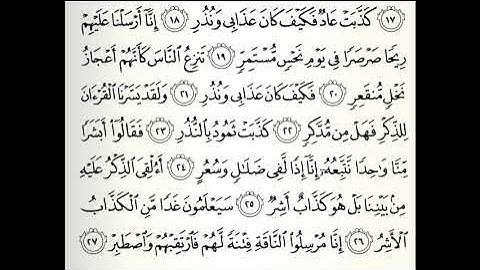 ١٧ كَذَّبَتْ عَادٌ فَكَيْفَ كَانَ عَذَابِى وَنُذُرِ ١٨ إِنَّآ أَرْسَلْنَا عَلَيْهِمْ
رِيحًا صَرْصَرًا فِى يَوْمِ نَحْسٍ مُّسْتَمِرٍّ ١٩ تَنزِعُ ٱلنَّاسَ كَأَنَّهُمْ أَعْجَازُ
نَخْلٍ مُّنقَعِرٍ ٢٠ فَكَيْفَ كَانَ عَذَابِى وَنُذُرِ ٢١ وَلَقَدْ يَسَّرْنَا ٱلْقُرْءَانَ
لِلذِّكْرِ فَهَلْ مِن مُّدَّكِرٍ ٢٢ كَذَّبَتْ ثَمُودُ بِٱلنُّذُرِ ٢٣ فَقَالُوٓا۟ أَبَشَرًا
مِّنَّا وَٰحِدًا نَّتَّبِعُهُۥٓ إِنَّآ إِذًا لَّفِى ضَلَٰلٍ وَسُعُرٍ ٢٤ أَءُلْقِىَ ٱلذِّكْرُ عَلَيْهِ
مِنۢ بَيْنِنَا بَلْ هُوَ كَذَّابٌ أَشِرٌ ٢٥ سَيَعْلَمُونَ غَدًا مَّنِ ٱلْكَذَّابُ
ٱلْأَشِرُ ٢٦ إِنَّا مُرْسِلُوا۟ ٱلنَّاقَةِ فِتْنَةً لَّهُمْ فَٱرْتَقِبْهُمْ وَٱصْطَبِرْ ٢٧